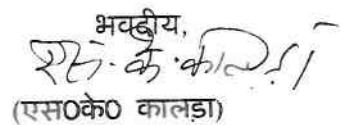 भवदीय,
एस. के. कालड़ा
(एस0के0 कालड़ा)